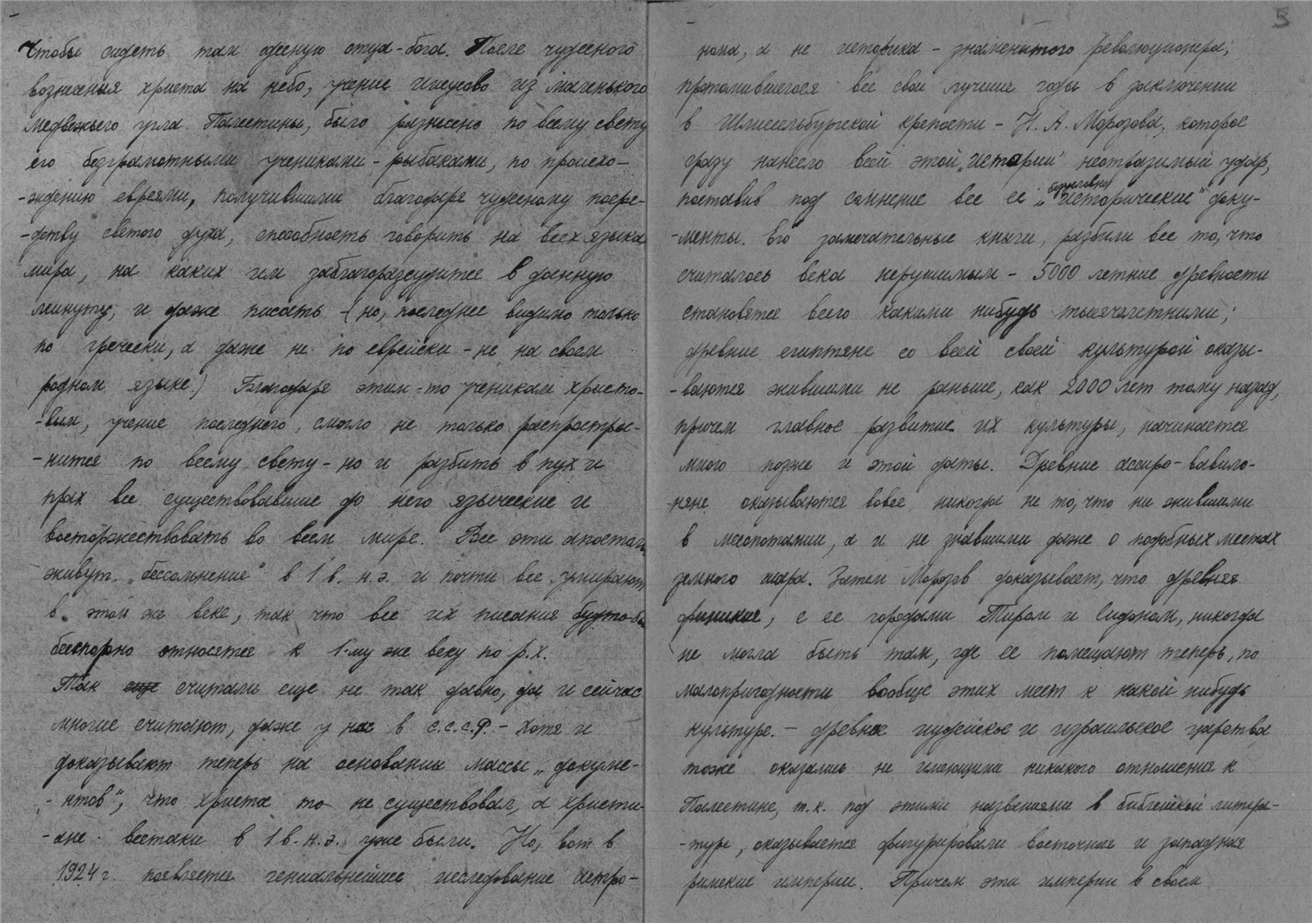 Чтобы сидеть там одесную отца-бога. После чудесного
вознесения христа на небо, учение иисусово из маленького
медвежьего угла Палестины, было разнесено по всему свету
его безграмотными учениками-рыбаками, по происхо-
-ждению евреями, получившими благодаря чудесному посре-
-дству святого духа, способность говорить на всех языках
мира, на каких им заблагорассудится в данную
минуту, и даже писать (но, последнее видимо только
по гречески, а даже не по еврейски - не на своем
родном языке.) Благодаря этим-то ученикам христо-
-вым, учение последнего, смогло не только распростра-
-нится по всему свету - но и разбить в пух и
прах все существовавшие до него языческие и
восторжествовать во всем мире. Все эти апостолы
живут „бессомненно" в 1 в. н.э. и почти все умирают
в этом же веке, так что все их писания будто-бы
бесспорно относятся к 1-му же веку по р.х.
Так еще считали еще не так давно, да и сейчас
многие считают, даже у нас в С.С.С.Р. - хотя и
доказывают теперь на основании массы „докуме-
-нтов", что христа то не существовал, а христи-
-ане всетаки в 1 в. н.э. уже были. Но, вот в
1924 г. появляется гениальнейшее исследование астро-
5
нома, а не историка - знаменитого революционера,
протомившегося все свои лучшие годы в заключении
в Шлиссельбургской крепости - Н. А. Морозова, которое
сразу нанесло всей этой „истории" неотразимый удар,
поставив под сомнение все ее „безусловно исторические" доку-
-менты. Его замечательные книги, разбили все то, что
считалось века нерушимым - 5000 летние древности
становятся всего какими нибудь тысячелетними;
древние египтяне со всей своей культурой оказы-
-ваются жившими не раньше, как 2000 лет тому назад,
причем главное развитие их культуры, начинается
много позже и этой даты. Древние ассиро-вавило-
-няне оказываются вовсе никогда не то, что ни жившими
в месопотамии, а и не знавшими даже о подобных местах
земного шара. Затем Морозов доказывает, что древняя
финикия, с ее городами Тиром и Сидоном, никогда
не могла быть там, где ее помещают теперь, по
малопригодности вообще этих мест к какой нибудь
культуре. - древнее иудейское и израильское царства
тоже оказались не имеющими никакого отношения к
Палестине, т.к. под этими названиями в библейской литера-
-туре, оказывается фигурировали восточная и западная
римские империи. Причем эти империи в своем